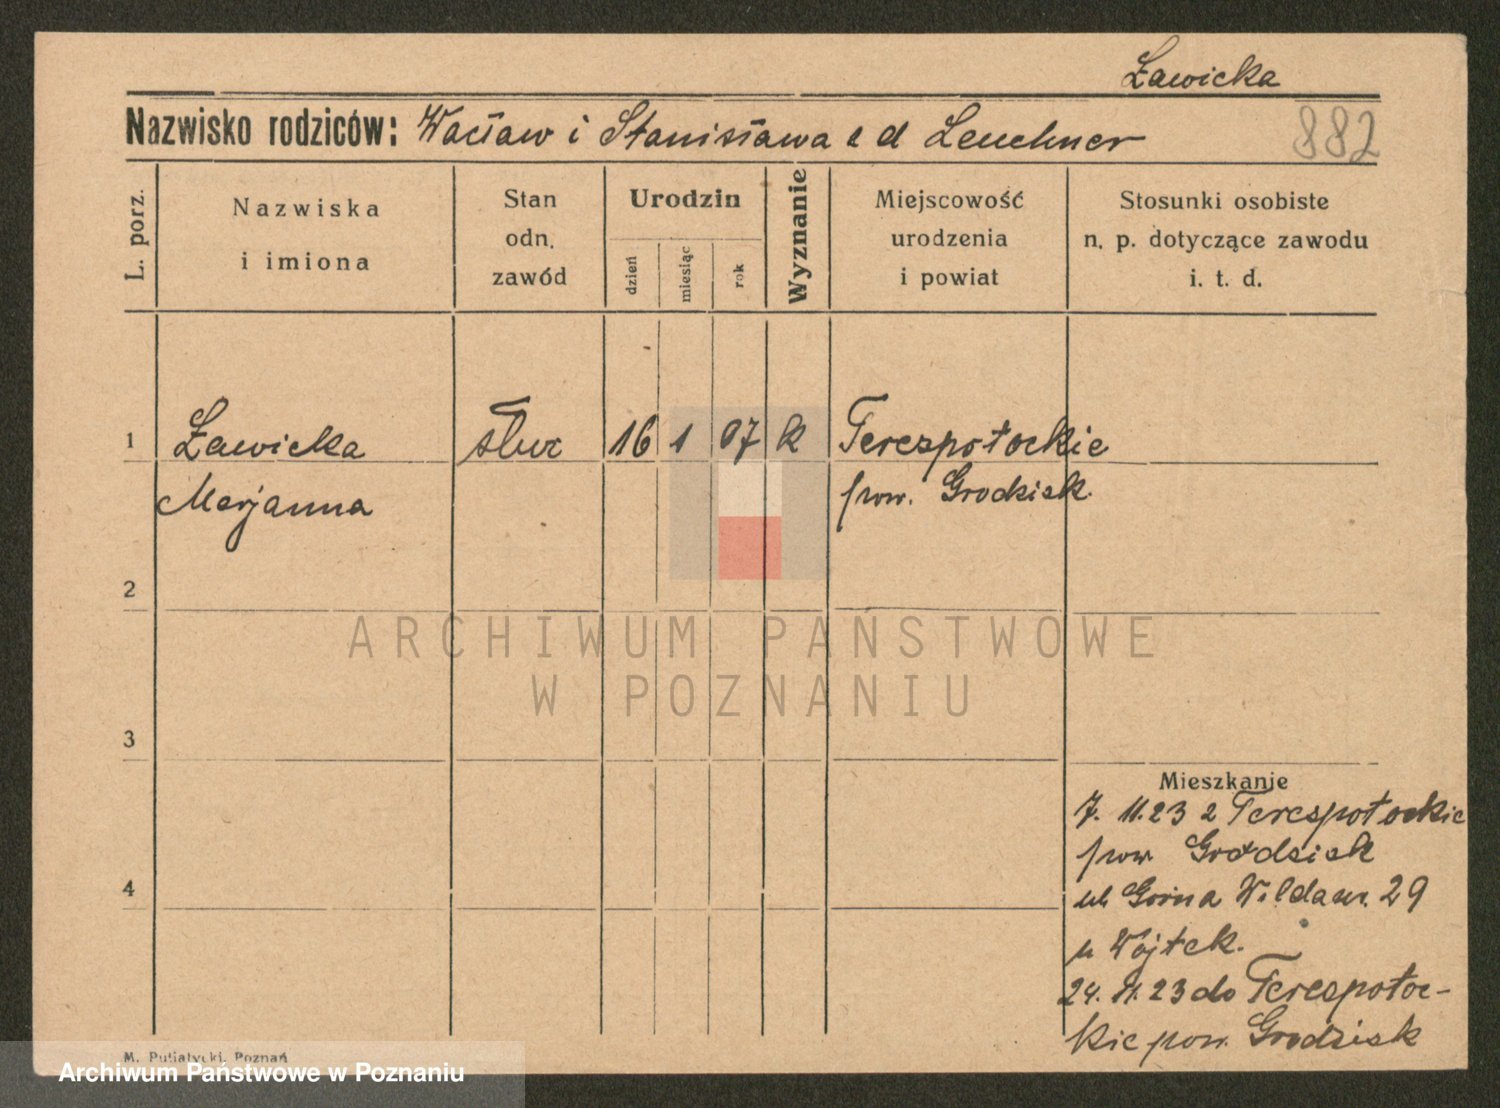 Ławicka
Nazwisko rodziców: Wacław i Stanisława z d Leuchner
882
L. porz.
Nazwiska
i imiona
Stan
odn.
zawód
Urodzin
dzień
miesiąc
rok
Wyznanie
Miejscowość
urodzenia
i powiat
Stosunki osobiste
n. p. dotyczące zawodu
i. t. d.
1 Ławicka służ 16 1 07 k Terespotockie
Marjanna pow. Grodzisk.
2
ARCHIWUM PAŃSTWOWE
W POZNANIU
3
Mieszkanie
7. 11.23 z Terespotockie
pow Grodzisk
4
ul. Górna Wilda nr. 29
u Wojtek.
24. 11.23 do Terespotoc-
kie pow. Grodzisk
M. Putiatycki, Poznań
Archiwum Państwowe w Poznaniu